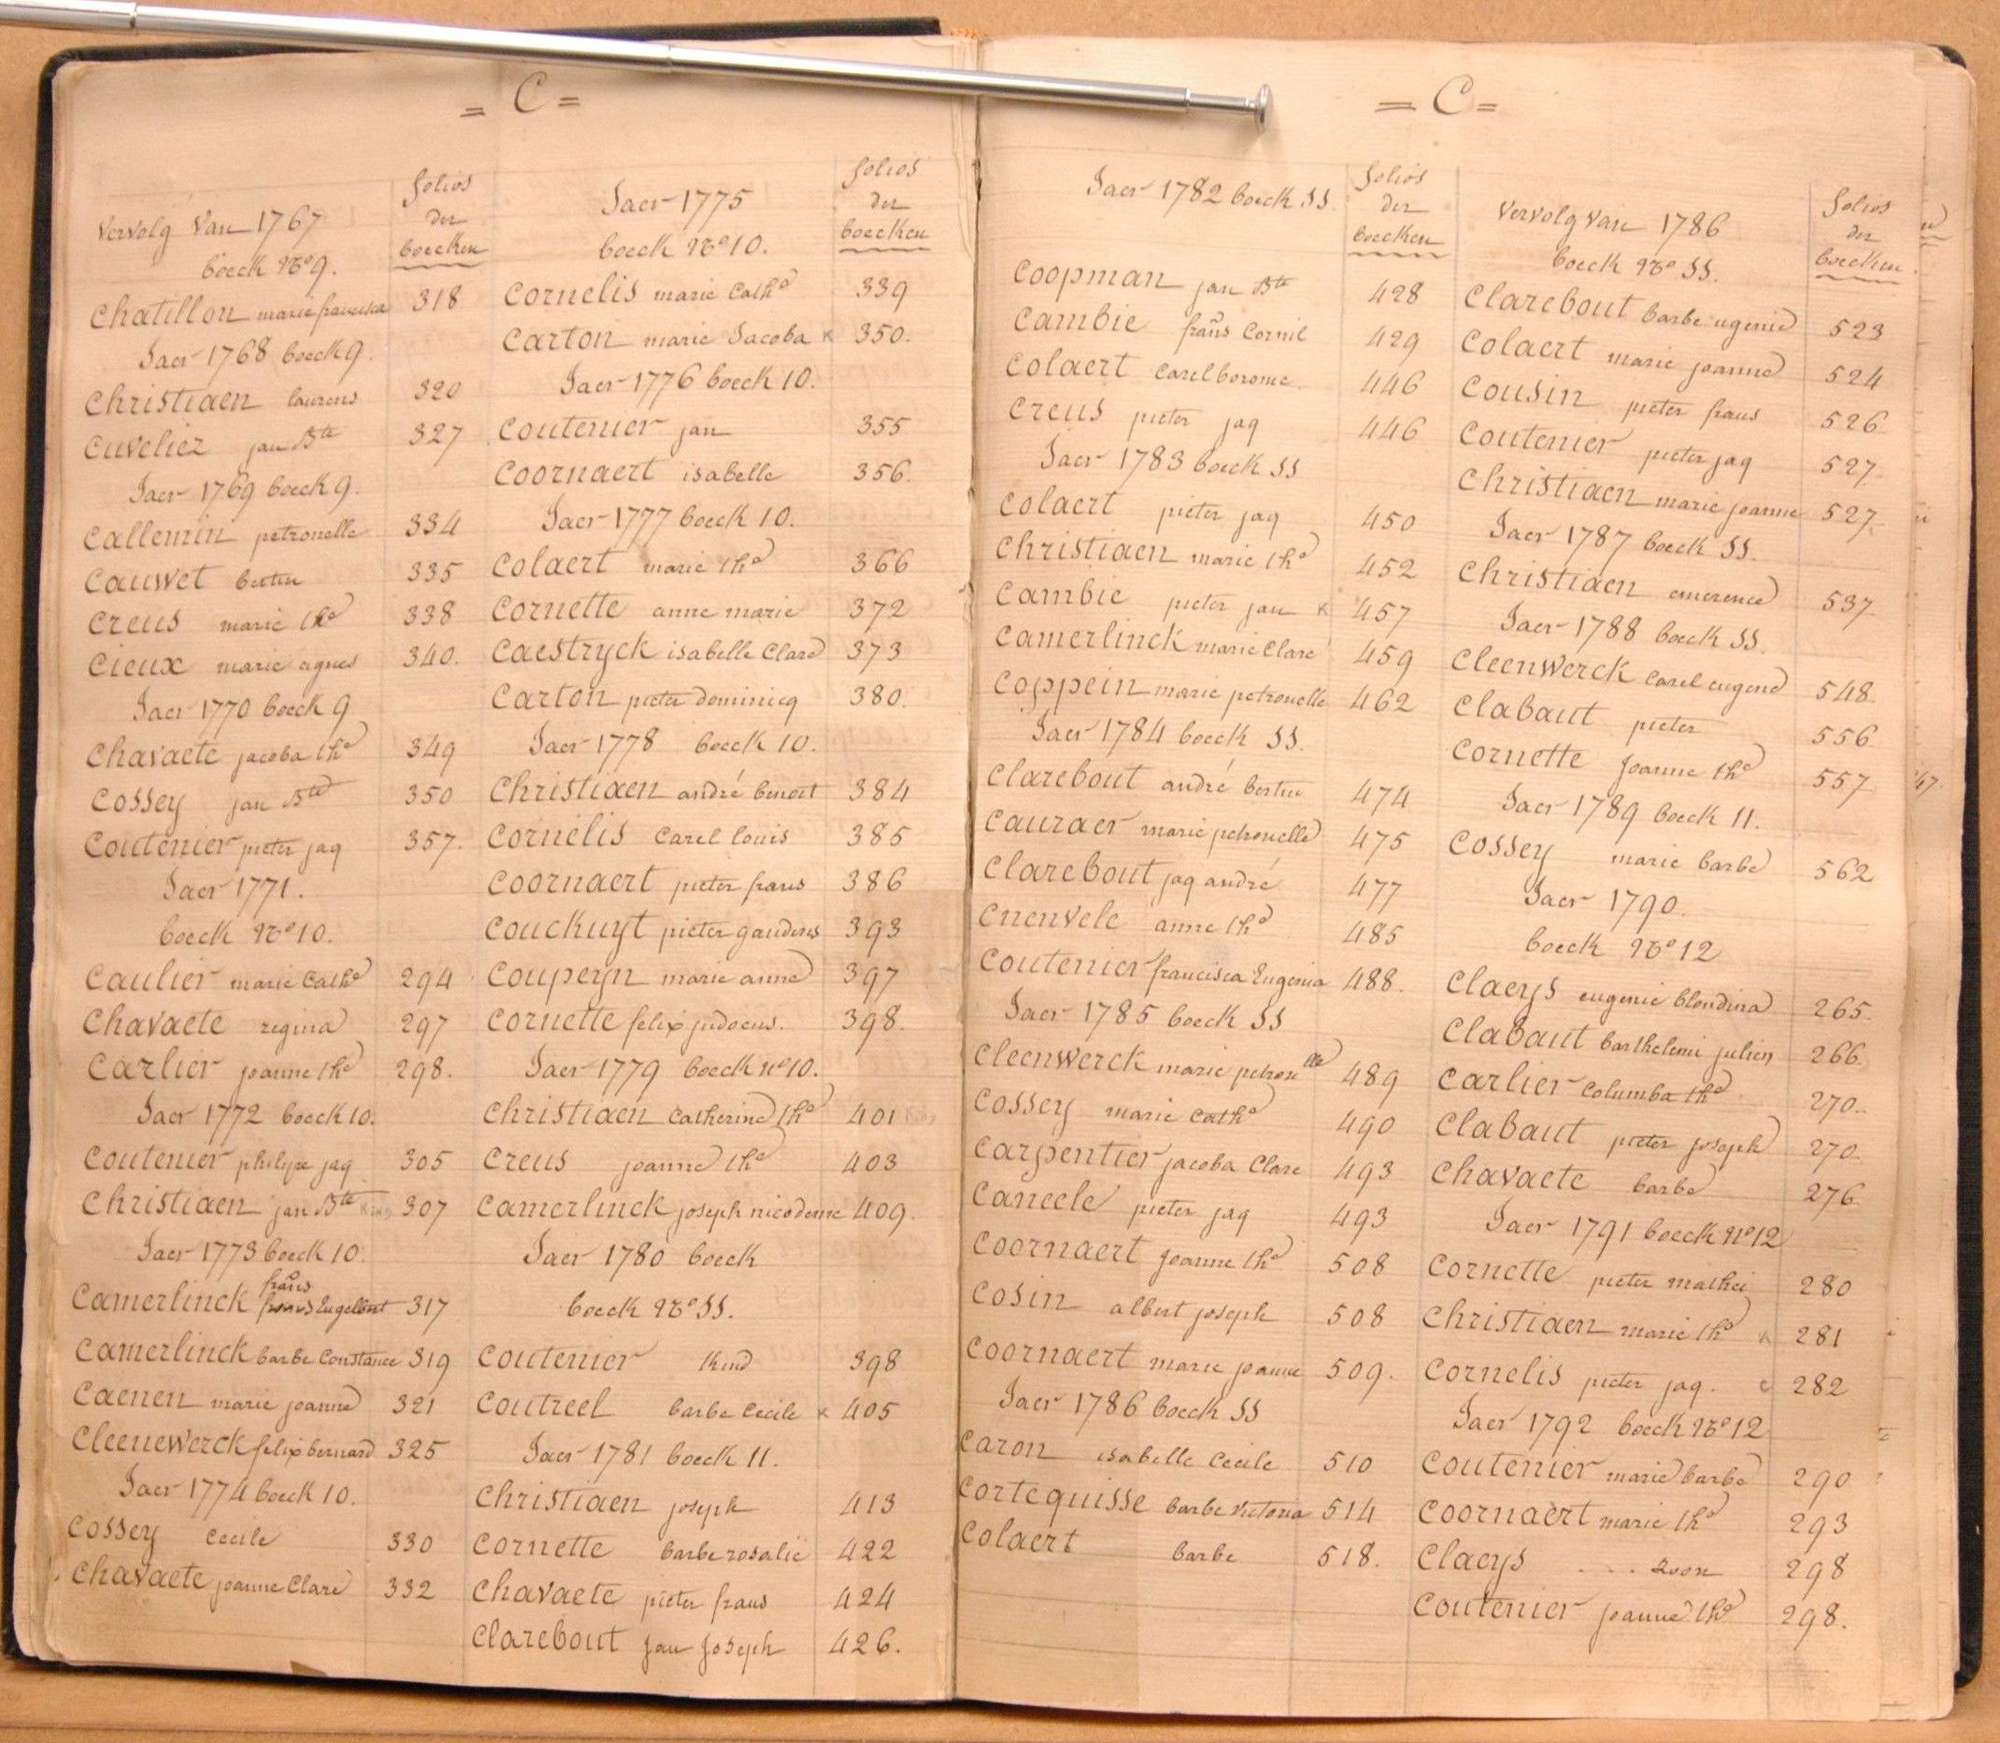 = C =
Vervolg Van 1767
boeck No 9.
folios
der
boecken
Chatillon marie francisca 318
Jaer 1768 boeck 9.
Christiaen laurens 320
Cuvelier jan Bte 327
Jaer 1769 boeck 9.
Callemin petronelle 334
Cauwet bertin 335
Creus marie the 338
Cieux marie agnes 340.
Jaer 1770 boeck 9
Chavaete jacoba the 349
Cossey jan Bte 350
Coutenier pieter jaq 357.
Jaer 1771.
boeck No 10.
Caulier marie Cathe 294
Chavaete regina 297
Carlier joanne the 298.
Jaer 1772 boeck 10.
Coutenier philipe jaq 305
Christiaen jan Bte 307
Jaer 1773 boeck 10.
frans
Camerlinck Engelbert 317
Camerlinck barbe Constance 319
Caenen marie joanne 321
Cleenewerck felix bernard 325
Jaer 1774 boeck 10.
Cossey Cecile 330
Chavaete joanne Clare 332
Jaer 1775
boeck No 10.
folios
der
boecken
Cornelis marie Cathe 339
Carton marie Jacoba x 350.
Jaer 1776 boeck 10.
Coutenier jan 355
Coornaert isabelle 356.
Jaer 1777 boeck 10.
Colaert marie the 366
Cornette anne marie 372
Caestryck isabelle Clare 373
Carton pieter dominicq 380.
Jaer 1778 boeck 10.
Christiaen andré benoit 384
Cornelis Carel louis 385
Coornaert pieter frans 386
Couckuyt pieter gaudens 393
Coupeyn marie anne 397
Cornette felix judocus. 398.
Jaer 1779 boeck no 10.
Christiaen Catherine the 401
Creus joanne the 403
Camerlinck joseph nicodeme 409.
Jaer 1780 boeck
boeck No SS.
Coutenier kind 398
Coutreel barbe Cecile x 405
Jaer 1781 boeck 11.
Christiaen joseph 413
Cornette barbe rosalie 422
Chavaete pieter frans 424
Clarebout jan joseph 426.
= C =
Jaer 1782 boeck SS
folios
der
boecken
Coopman jan Bte 428
Cambie frans Cornil 429
Colaert Carel borome. 446
Creus pieter jaq 446
Jaer 1783 boeck SS
Colaert pieter jaq 450
Christiaen marie the 452
Cambie pieter jan x 457
Camerlinck marie Clare 459
Coppein marie petronelle 462
Jaer 1784 boeck SS.
Clarebout andré bertin 474
Cauraer marie petronelle 475
Clarebout jaq andré 477
Cnenvele anne the 485
Coutenier francisca Eugenia 488.
Jaer 1785 boeck SS
Cleenwerck marie petronlle 489
Cossey marie Cathe 490
Carpentier jacoba Clare 493
Caneele pieter jaq 493
Coornaert joanne the 508
Cosin albert joseph 508
Coornaert marie joanne 509.
Jaer 1786 boeck SS
Caron isabelle Cecile 510
Cortequisse barbe victoria 514
Colaert barbe 518.
Vervolg Van 1786
boeck No SS.
folios
der
boecken
Clarebout barbe ugenie 523
Colaert marie joanne 524
Cousin pieter frans 526
Coutenier pieter jaq 527
Christiaen marie joanne 527
Jaer 1787 boeck SS.
Christiaen emerence 537
Jaer 1788 boeck SS.
Cleenwerck Carel eugene 548
Clabaut pieter 556
Cornette joanne the 557
Jaer 1789 boeck 11.
Cossey marie barbe 562
Jaer 1790.
boeck No 12
Claeys eugenie blondina 265.
Clabaut barthelemi julien 266.
Carlier Columba the 270.
Clabaut pieter joseph 270.
Chavaete barbe 276.
Jaer 1791 boeck No 12
Cornette pieter mathei 280
Christiaen marie the x 281
Cornelis pieter jaq. 282
Jaer 1792 boeck No 12
Coutenier marie barbe 290
Coornaert marie the 293
Claeys ... Zoon 298
Coutenier joanne the 298.